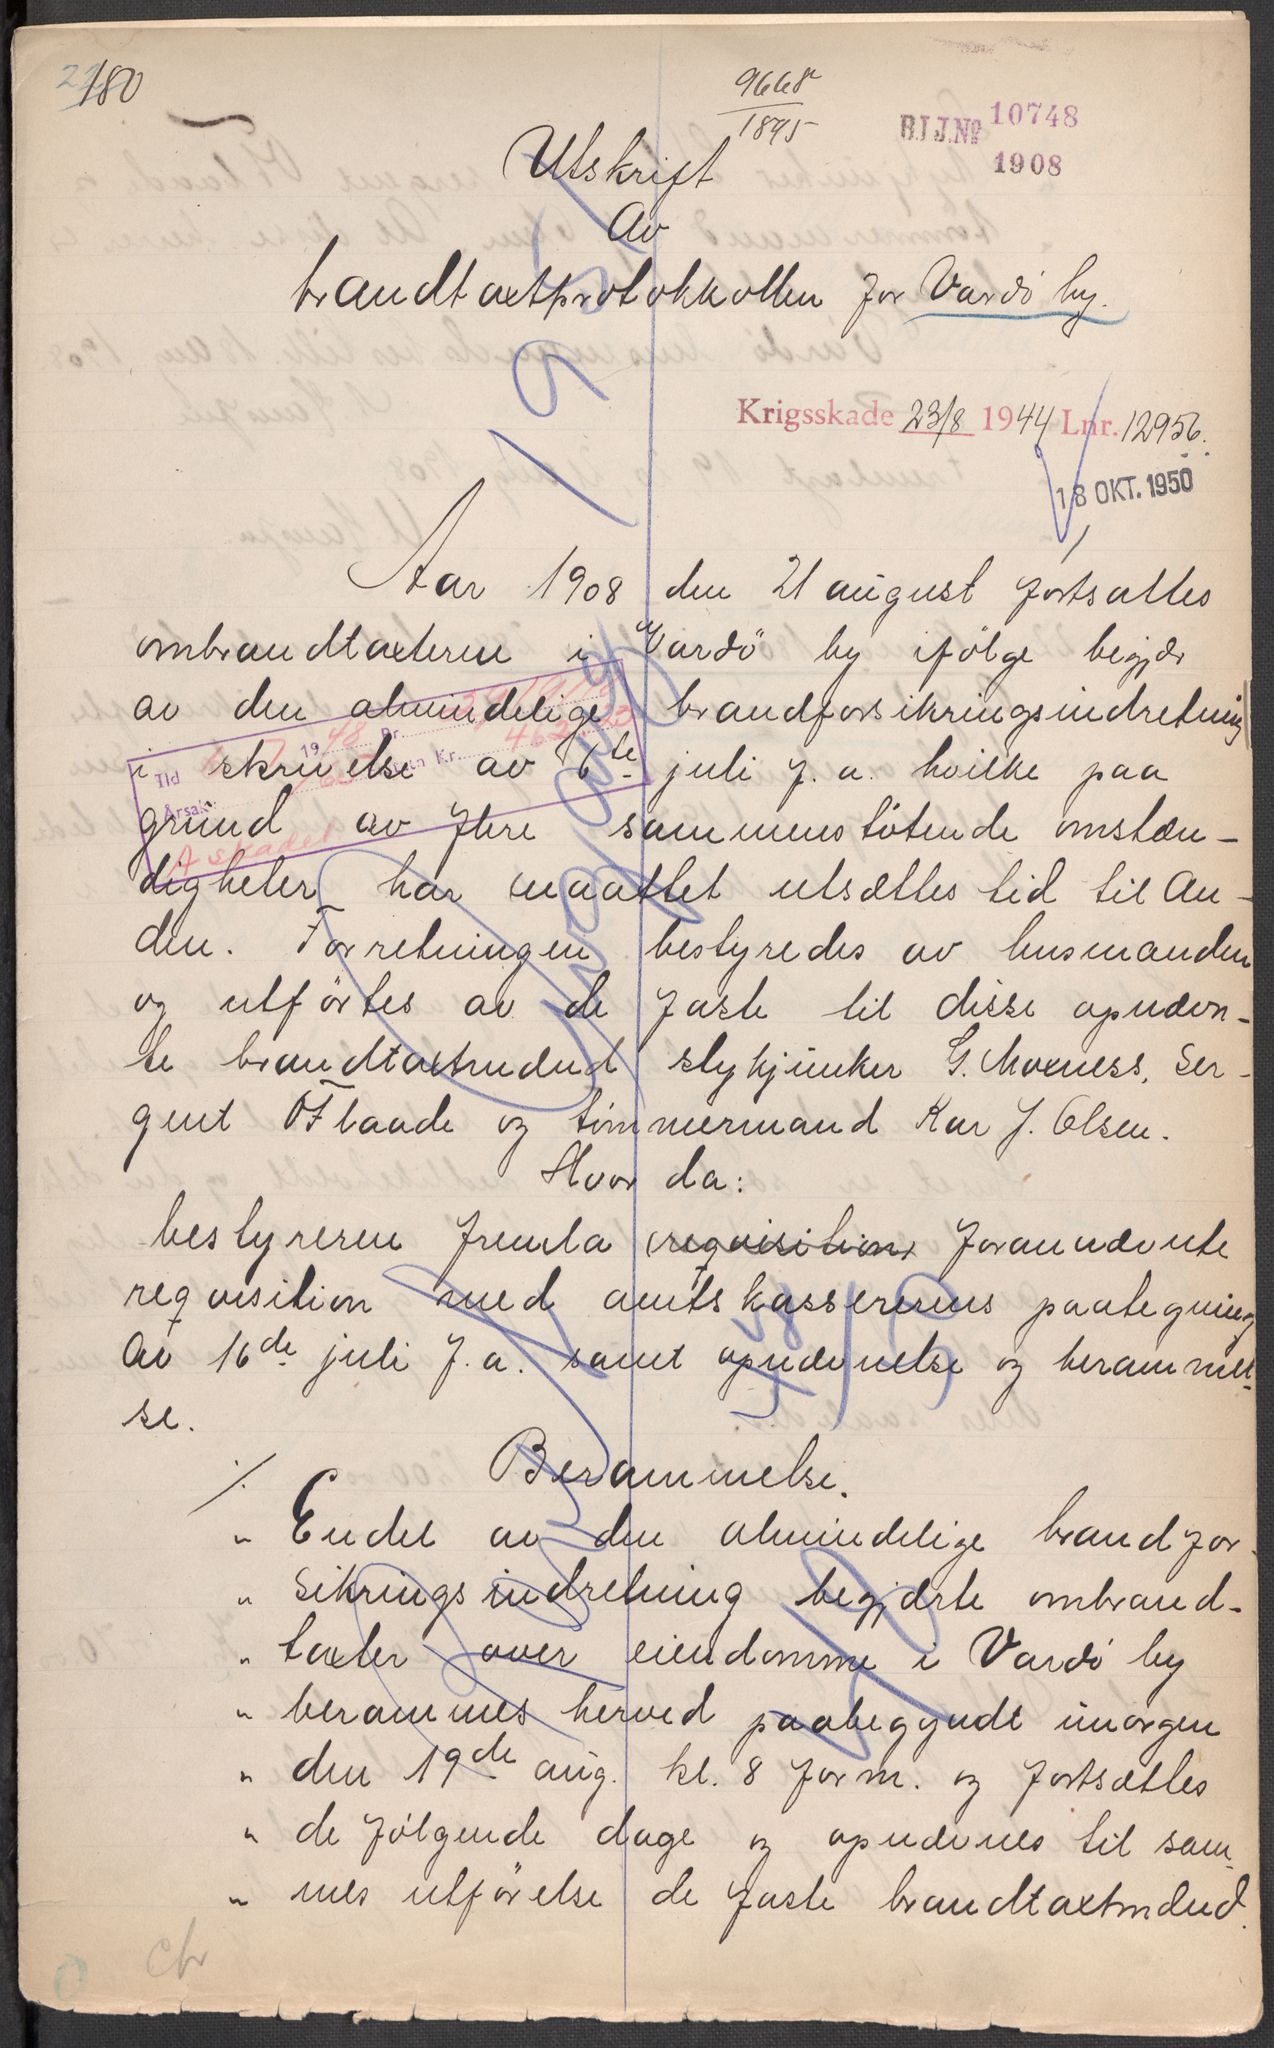 180
9668
1895
B.I J.Nº 10748
1908
Utskrift
Av
brandtaxtprotokkollen for Vardö by.
Krigsskade 23/8 1944 Lnr. 12956.
18 OKT. 1950
Aar 1908 den 21 august fortsattes
ombrandtaxterne i Vardö by ifölge begjær
av den almindelige brandforsikringsindretning
i skrivelse av 6te juli f. a. hvilke paa
grund av flere sammenstötende omstæn-
digheter har maattet utsættes tid til An-
den. Forretningen bestyredes av lensmanden
og utförtes av de faste til disse opnævn-
te brandtaxtmænd stykjunker G. Moxness, Ser-
gent O Flaade og tömmermand Kar J. Olsen.
Hvor da:
bestyreren fremla requisition forannævnte
reqvisition med amtskassererens paategning
Av 16de juli f. a. samt opnævnelse og berammel-
se.
Berammelse.
" Endel av den almindelige brandfor-
" sikringsindretning begjærte ombrand-
" taxter over eiendomme i Vardö by
" berammes herved paabegyndt imorgen
" den 19de aug. kl. 8 form. og fortsættes
" de fölgende dage og opnævnes til sam-
" mes utförelse de faste brandtaxtmænd.